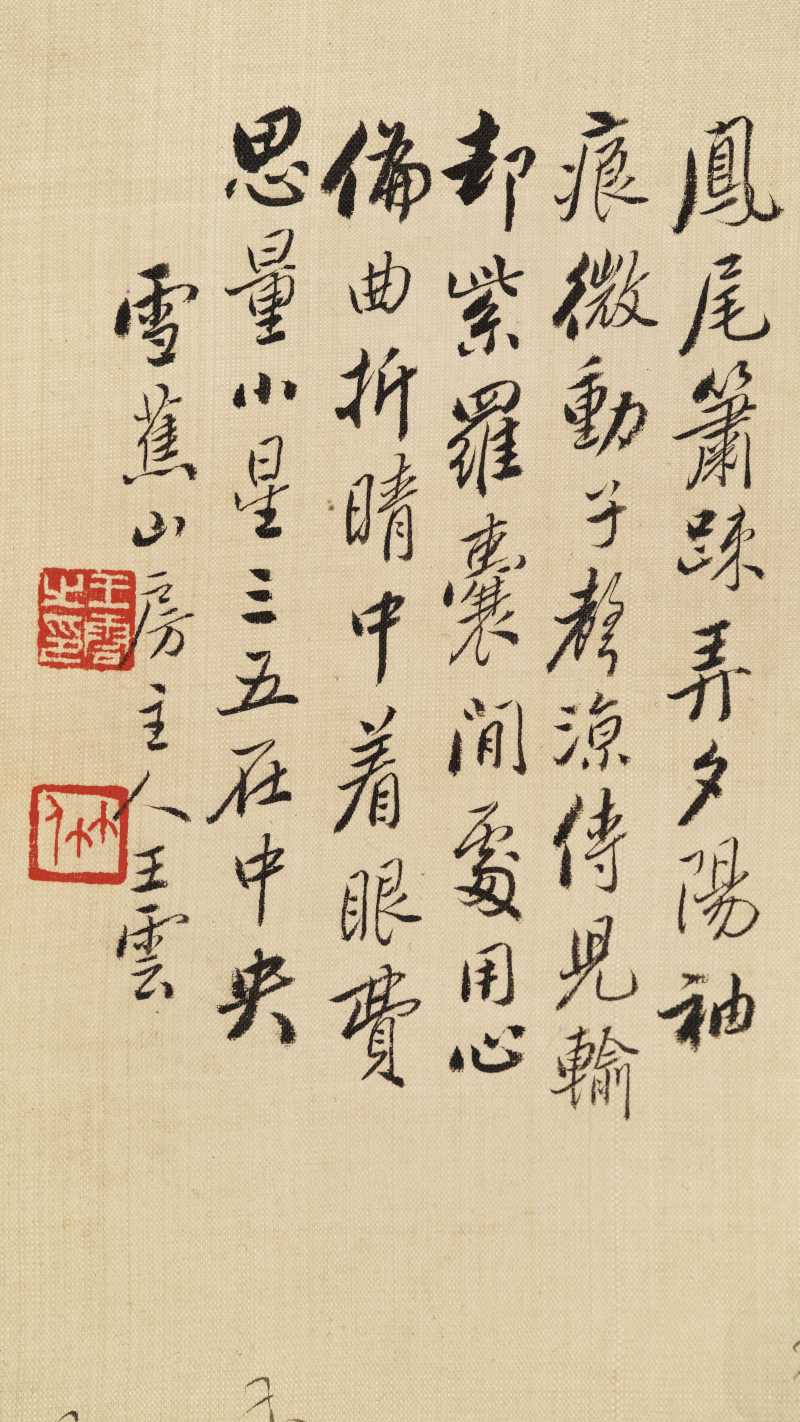 鳳尾簫疎弄夕陽袖
痕微動子聲涼傳児輸
却紫羅囊閒處用心
偏曲折晴中着眼費
思量小星三五在中央
雪蕉山房主人王雲
王雲之印